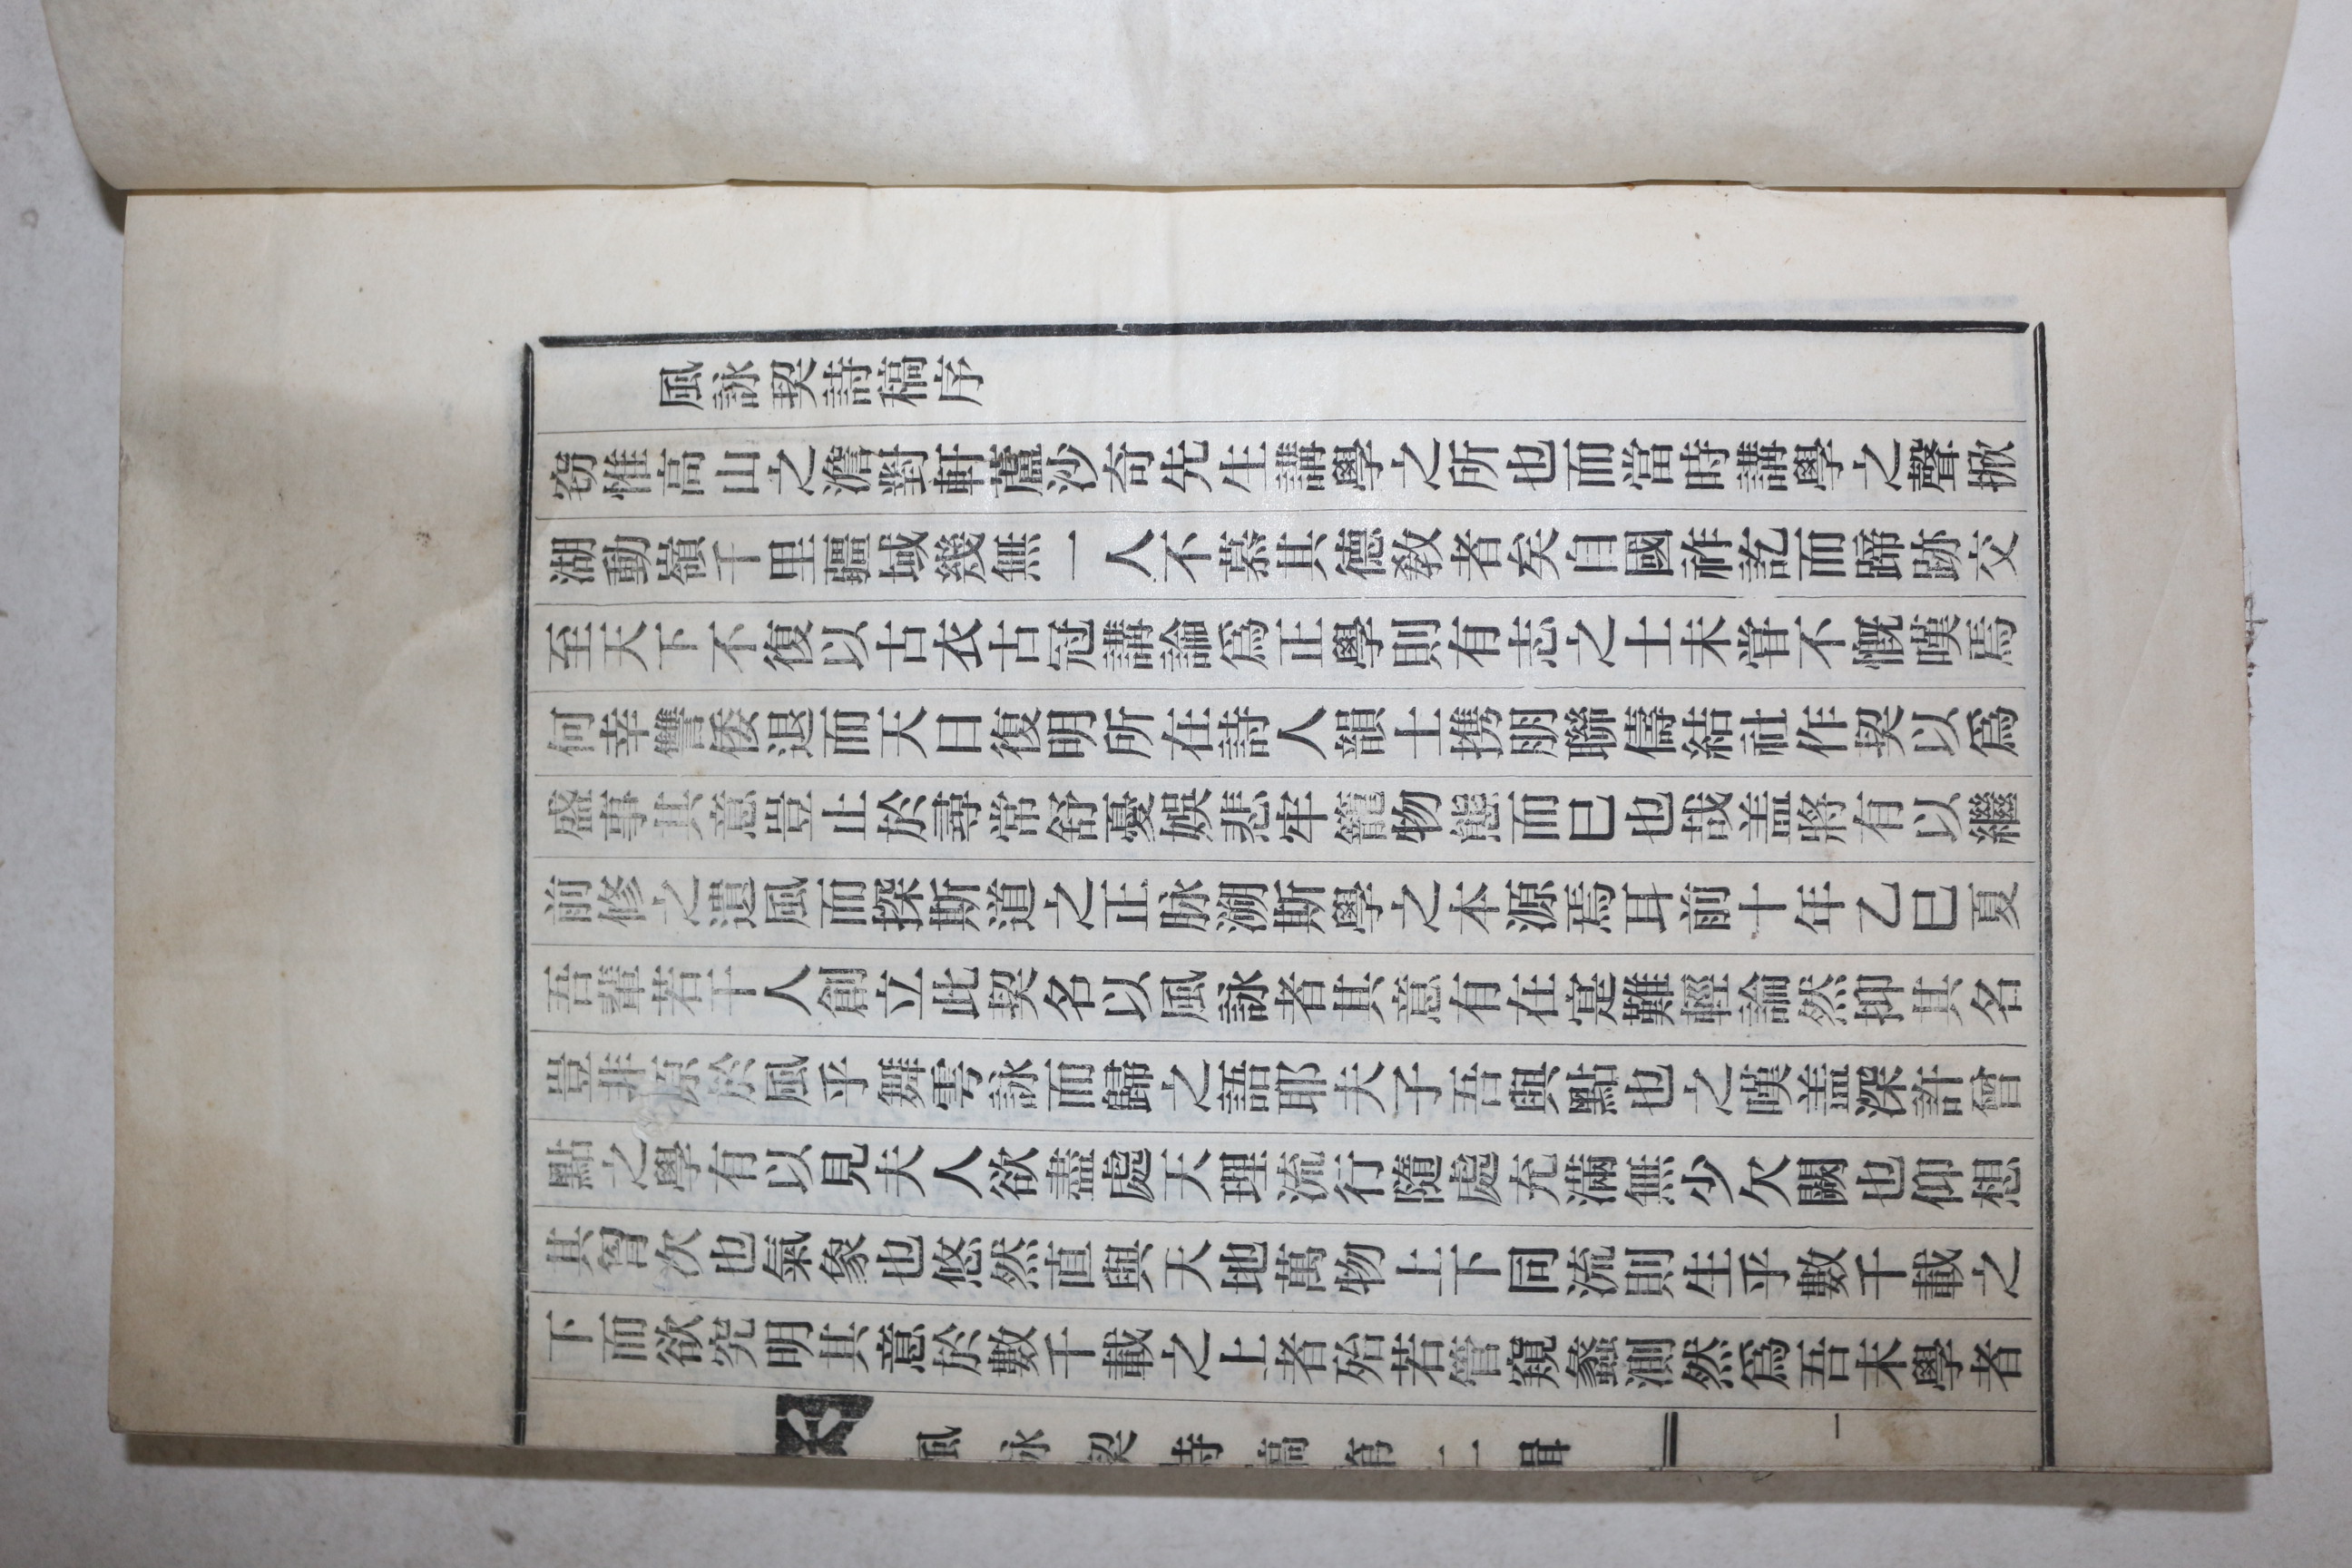 風詠契詩稿序
窃惟高山之澹對軒蘆沙奇先生講學之所也而當時講學之聲掀
湖動嶺千里疆域幾無一人不慕其德敎者矣自國祚訖而蹄跡交
至天下不復以古衣古冠講論爲正學則有志之士未甞不慨嘆焉
何幸讐倭退而天日復明所在詩人韻士携朋聯儔結社作契以爲
盛事其意豈止於尋常舒憂娛悲牢籠物態而已也哉盖將有以繼
前修之遺風而探斯道之正脉溯斯學之本源焉耳前十年乙巳夏
吾輩若干人創立此契名以風詠者其意有在寔難輕論然抑其名
豈非原於風乎舞雩詠而歸之語耶夫子吾與點也之嘆盖深許曾
點之學有以見夫人欲盡處天理流行隨處充滿無少欠闕也仰想
其胷次也氣象也悠然直與天地萬物上下同流則生乎數千載之
下而欲究明其意於數千載之上者殆若管窺蠡測然爲吾末學者
風詠契詩稿第二輯
一